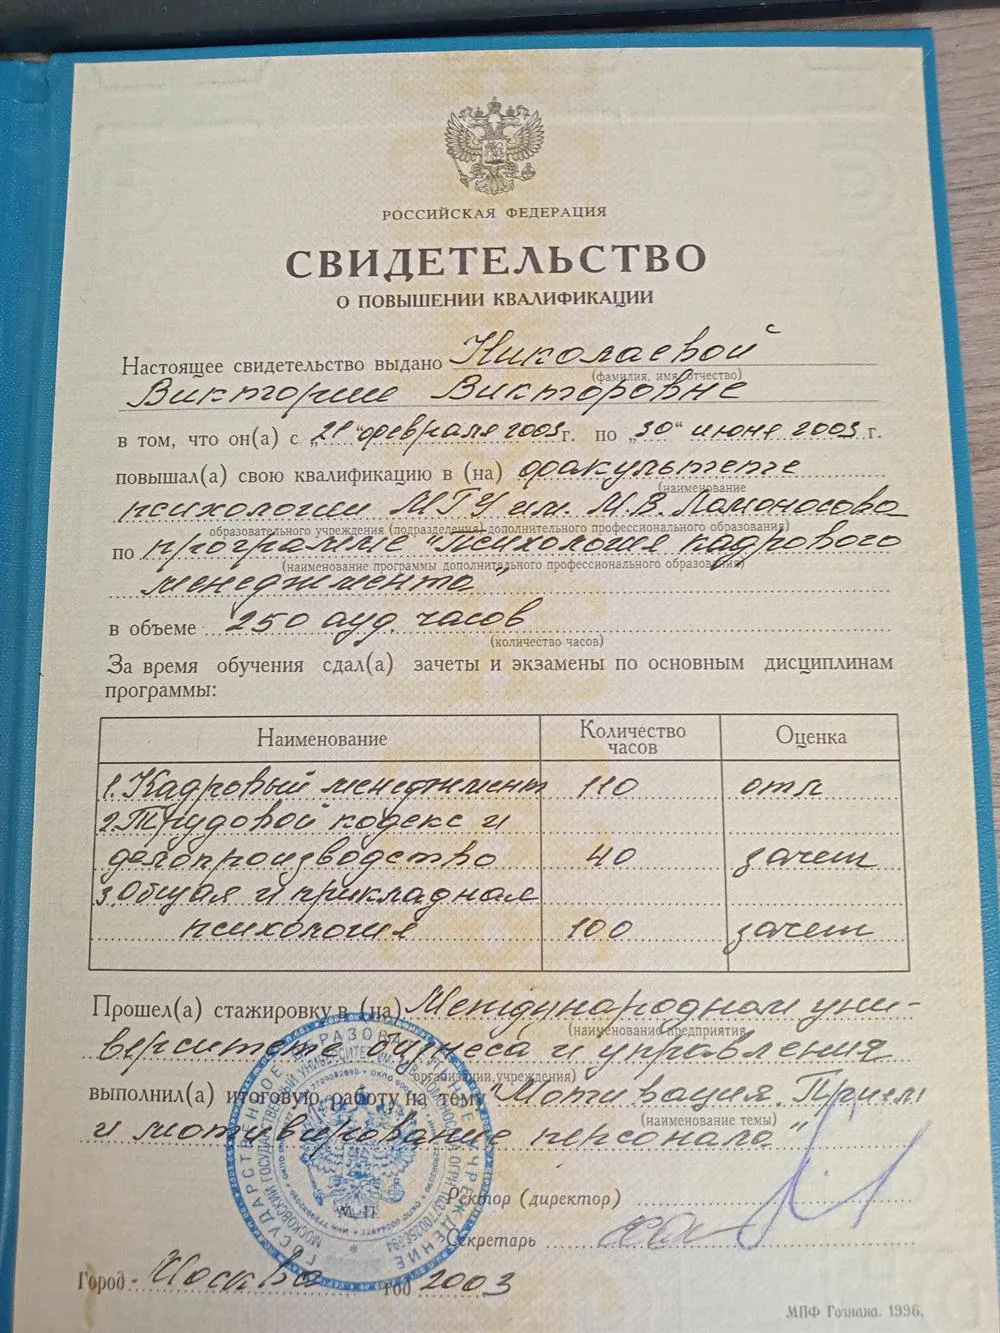 РОССИЙСКАЯ ФЕДЕРАЦИЯ
СВИДЕТЕЛЬСТВО
О ПОВЫШЕНИИ КВАЛИФИКАЦИИ
Настоящее свидетельство выдано Николаевой
(фамилия, имя, отчество)
Виктории Викторовне
в том, что он(а) с „21“ февраля 2003 г. по „30“ июня 2003 г.
повышал(а) свою квалификацию в (на) факультете
(наименование
психологии МГУ им. М.В. Ломоносова
образовательного учреждения (подразделения) дополнительного профессионального образования)
по программе "Психология кадрового
(наименование программы дополнительного профессионального образования)
менеджмента"
в объеме 250 ауд. часов
(количество часов)
За время обучения сдал(а) зачеты и экзамены по основным дисциплинам
программы:
Наименование Количество часов Оценка
1. Кадровый менеджмент 110 отл
2. Трудовой кодекс и
делопроизводство 40 зачет
3. Общая и прикладная
психология 100 зачет
Прошел(а) стажировку в (на) Международном уни-
(наименование предприятия,
верситете бизнеса и управления
организации, учреждения)
выполнил(а) итоговую работу на тему "Мотивация. Прием
(наименование темы)
и мотивирование персонала"
Ректор (директор)
М.П.
Секретарь
Город Москва год 2003
МПФ Гознака. 1996.